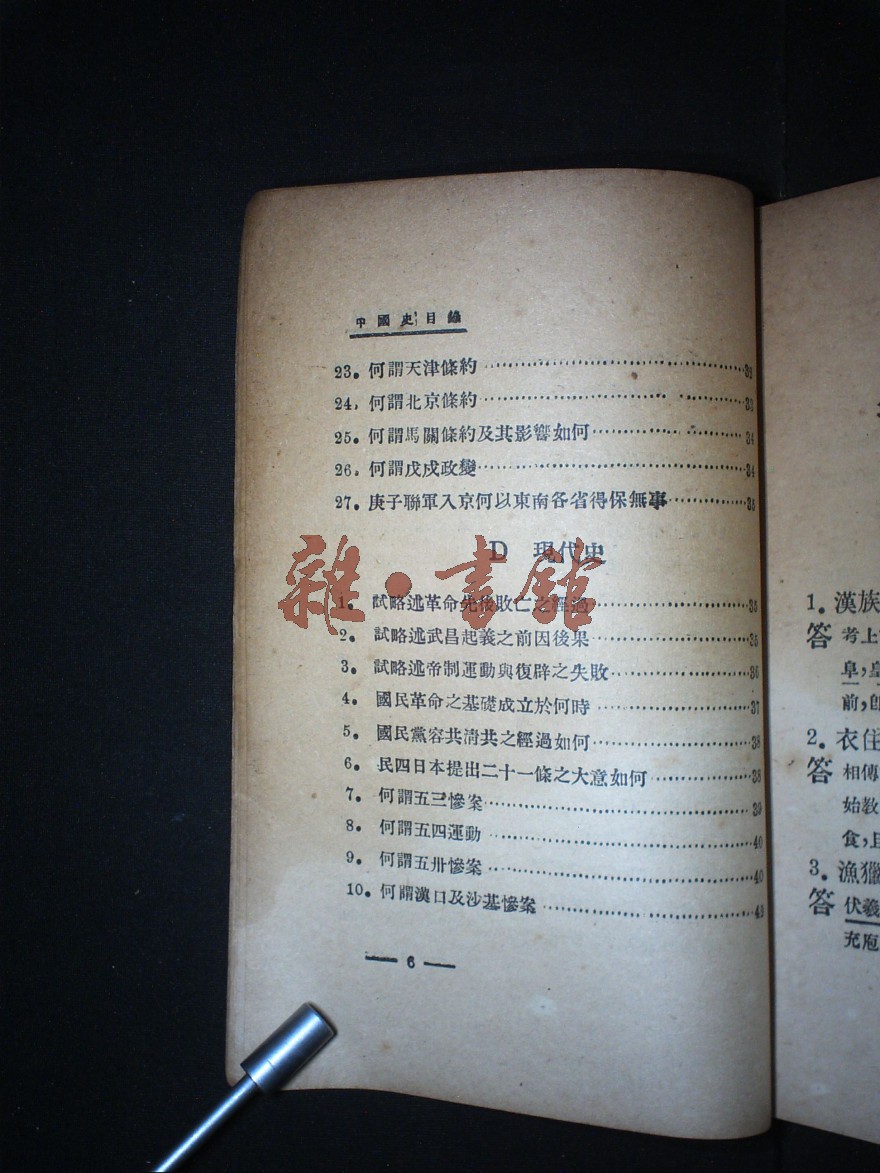 中國史目錄
23. 何謂天津條約 32
24. 何謂北京條約 33
25. 何謂馬關條約及其影響如何 34
26. 何謂戊戌政變 34
27. 庚子聯軍入京何以東南各省得保無事 35
D 現代史
1. 試略述革命先後敗亡之經過 33
2. 試略述武昌起義之前因後果 35
3. 試略述帝制運動與復辟之失敗 36
4. 國民革命之基礎成立於何時 37
5. 國民黨容共清共之經過如何 38
6. 民四日本提出二十一條之大意如何 38
7. 何謂五三慘案 39
8. 何謂五四運動 40
9. 何謂五卅慘案 40
10. 何謂漢口及沙基慘案 49
— 6 —
雜·書館
1. 漢族
答 考上
皐,
前,
2. 衣住
答 相傳
始教
食,且
3. 漁獵
答 伏羲
充庖